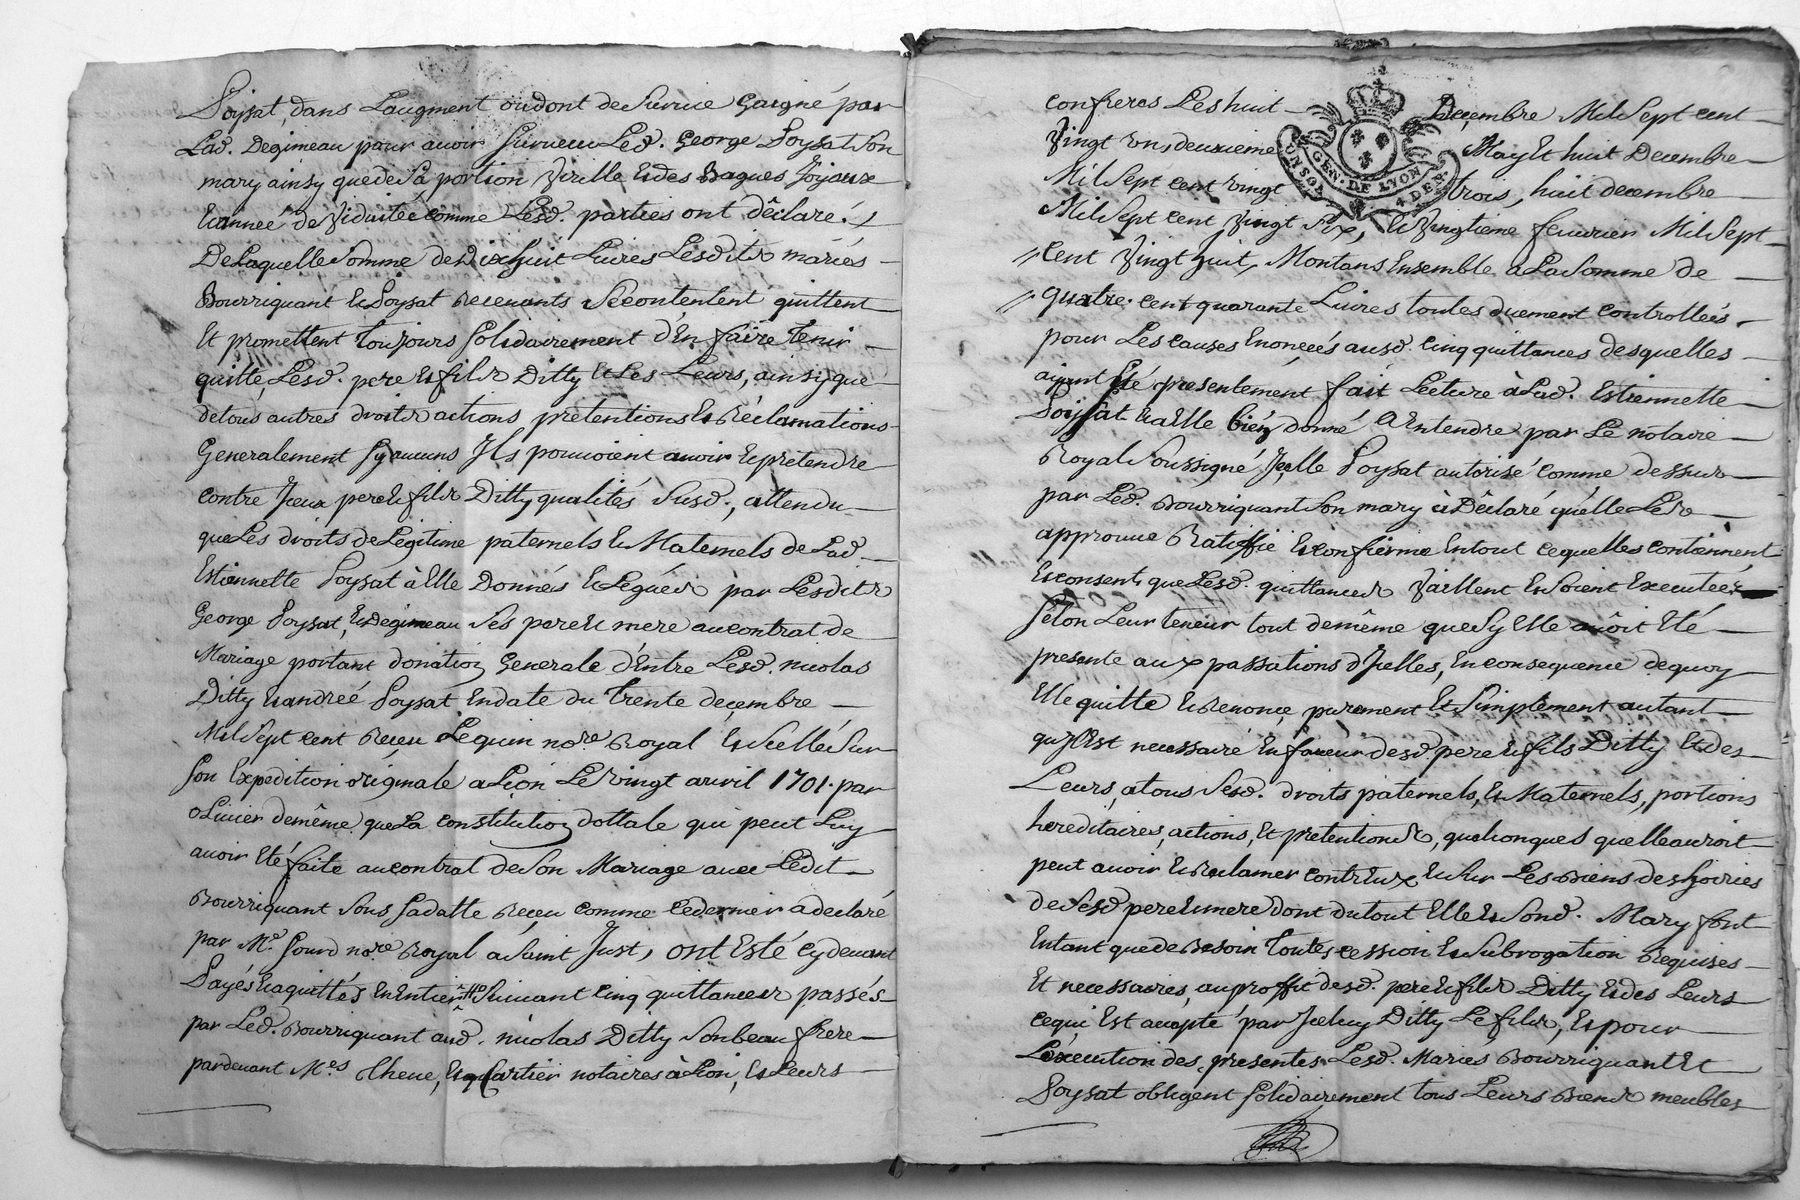 Poysat dans Laugment oudont de Survie Gaigné par
Lad. Degimeau pour avoir survecu Led. George Poysat son
mary ainsy quede sa portion Virille et des Bagues Joyaux
et année de Viduitée comme Lesd. parties ont déclaré.
De Laquelle Somme de Dixhuit Livres Lesdits mariés
Bourriquant et Poysat Recevants Se contentent quittent
Et promettent Toujours solidairement d'En faire Tenir
quitte, Lesd. pere et fils Ditty et Les Leurs, ainsyque
detous autres droits actions, pretentions et Réclamations
Generalement sy aucuns Ils pouvoient avoir et pretendre
contre Iceux pere et fils Ditty qualités Susd., attendu
queLes droits de Legitime paternels et Maternels de Lad.
Estiennette Poysat à Elle Donnés et Legués par Lesdits
George Poysat, et Degimeau Ses pere et mere aucontrat de
Mariage portant donation Generale d'Entre Lesd. nicolas
Ditty et andreé Poysat En date du Trente decembre
Mil Sept cent Receu Lequin no.re Royal et Scellé Sur
son Expedition originale a Lion Le vingt avril 1701. par
oLivier demême que La constitution dottale qui peut Luy
avoir Eté faite aucontrat de Son Mariage avec Ledit
Bourriquant sous sa datte Receu comme cedernier a declaré
par Me. Gourd no.re Royal a Saint Just, ont Esté cy devant
Payés et aquittés En Entier Suivant cinq quittances passés
par Led. Bourriquant aud. nicolas Ditty Son beau frere
pardevant M.es Cheue, et quartier notaires à Lion, et Leurs
confreres Les huit Decembre Mil Sept cent
Vingt un, deuxieme May Et huit Decembre
Mil Sept cent vingt trois, huit decembre
Mil Sept cent Vingt Six, et Vingtieme fevrier Mil Sept
Cent Vingt huit, Montans Ensemble a La Somme de
quatre cent quarante Livres toutes duement controllées
pour Les causes Enoncées ausd. cinq quittances desquelles
ayant Eté presentement fait Lecture à Lad. Estiennette
Poysat et a Elle bien donné A Entendre par Le notaire
Royal Soussigné, Icelle Poysat autorisé comme dessus
par Led. Bourriquant Son mary à Déclaré qu'elle Les
approuve Ratiffie et confirme En tout cequelles contiennent
et consent, que Lesd. quittances Vaillent et Soient Executées
selon Leur teneur tout demême que Sy Elle avoit Eté
presente aux passations d'Icelles, En consequence dequoy
Elle quitte et Renonce purement Et Simplement autant
qu'Il Est necessaire En faveur desd. pere et fils Ditty Et des
Leurs, a tous Sesd. droits paternels, et Maternels, portions
hereditaires, actions, Et pretentions, quelconques quelle auroit
peut avoir et Reclamer contr'Eux et Sur Les Biens des hoiries
de Sesd. pere et mere dont du tout Elle et Sond. Mary font
Entant que de Besoin Toutes cession et Subrogation Requises
Et necessaires, au proffit desd. pere et fils Ditty Et des Leurs
cequi Est accepté par Iceluy Ditty Le fils, Et pour
L'éxecution des presentes Lesd. Mariés Bourriquant Et
Poysat obligent solidairement tous Leurs Biens meubles
GEN. DE LYON
UN SOL 4 DEN.